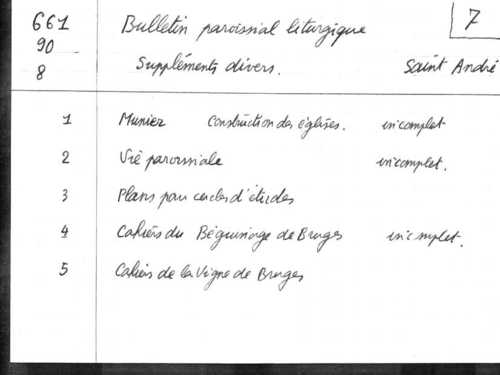 661 Bulletin paroissial liturgique 7
90
8 Suppléments divers. Saint André
1 Munier Construction des églises. incomplet
2 Vie paroissiale incomplet.
3 Plans pour cercles d'études
4 Cahiers du Béguinage de Bruges incomplet.
5 Cahiers de la Vigne de Bruges